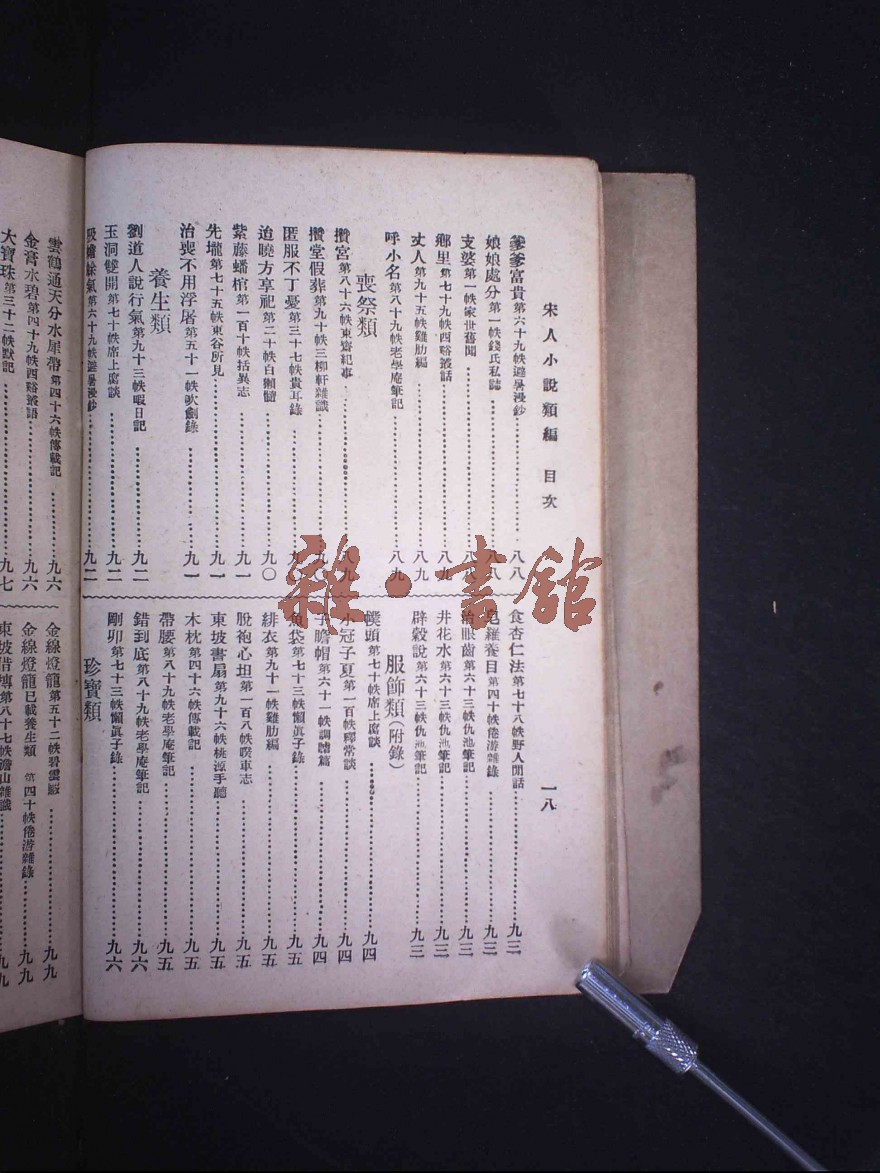 宋人小說類編 目次 一八
爹爹富貴第六十九帙避暑漫鈔……八八
娘娘處分第一帙錢氏私誌……八八
支婆第一帙家世舊聞……八八
鄉里第七十九帙西谿叢話……八九
丈人第九十五帙雞肋編……八九
呼小名第八十九帙老學庵筆記……八九
喪祭類
攢宮第八十六帙東齋紀事……八九
攢堂假葬第九十帙三柳軒雜識……九〇
匿服不丁憂第三十七帙貴耳錄……九〇
迨曉方享祀第二十帙白獺髓……九〇
紫藤蟠棺第一百十帙括異志……九一
先壠第七十五帙東谷所見……九一
治喪不用浮屠第五十一帙吹劍錄……九一
養生類
劉道人說行氣第九十三帙暇日記……九二
玉洞雙開第七十帙席上腐談……九二
第六十九帙避暑漫鈔……九二
食杏仁法第七十八帙野人閒話……九三
皂羅養目第四十帙倦游雜錄……九三
治眼齒第六十三帙仇池筆記……九三
井花水第六十三帙仇池筆記……九三
辟穀說第六十三帙仇池筆記……九三
服飾類(附錄)
幞頭第七十帙席上腐談……九四
小冠子夏第一百帙釋常談……九四
子瞻帽第六十一帙調謔篇……九四
魚袋第七十三帙懶眞子錄……九五
緋衣第九十一帙雞肋編……九五
脫袍心坦第一百八帙暌車志……九五
東坡書扇第九十六帙桃源手聽……九五
木枕第四十六帙傳載記……九五
帶腰第八十九帙老學庵筆記……九五
錯到底第八十九帙老學庵筆記……九六
剛卯第七十三帙懶眞子錄……九六
珍寶類
雲鶴通天分水犀帶第四十六帙傳載記……九六
金膏水碧第四十九帙西谿叢語……九六
大寶珠第三十二帙默記……九七
金線燈龍第五十二帙碧雲騢……九九
金線燈龍已載養生類 第四十帙倦游雜錄……九九
東坡借磚第八十七帙澹山雜識……九九
雜·書館